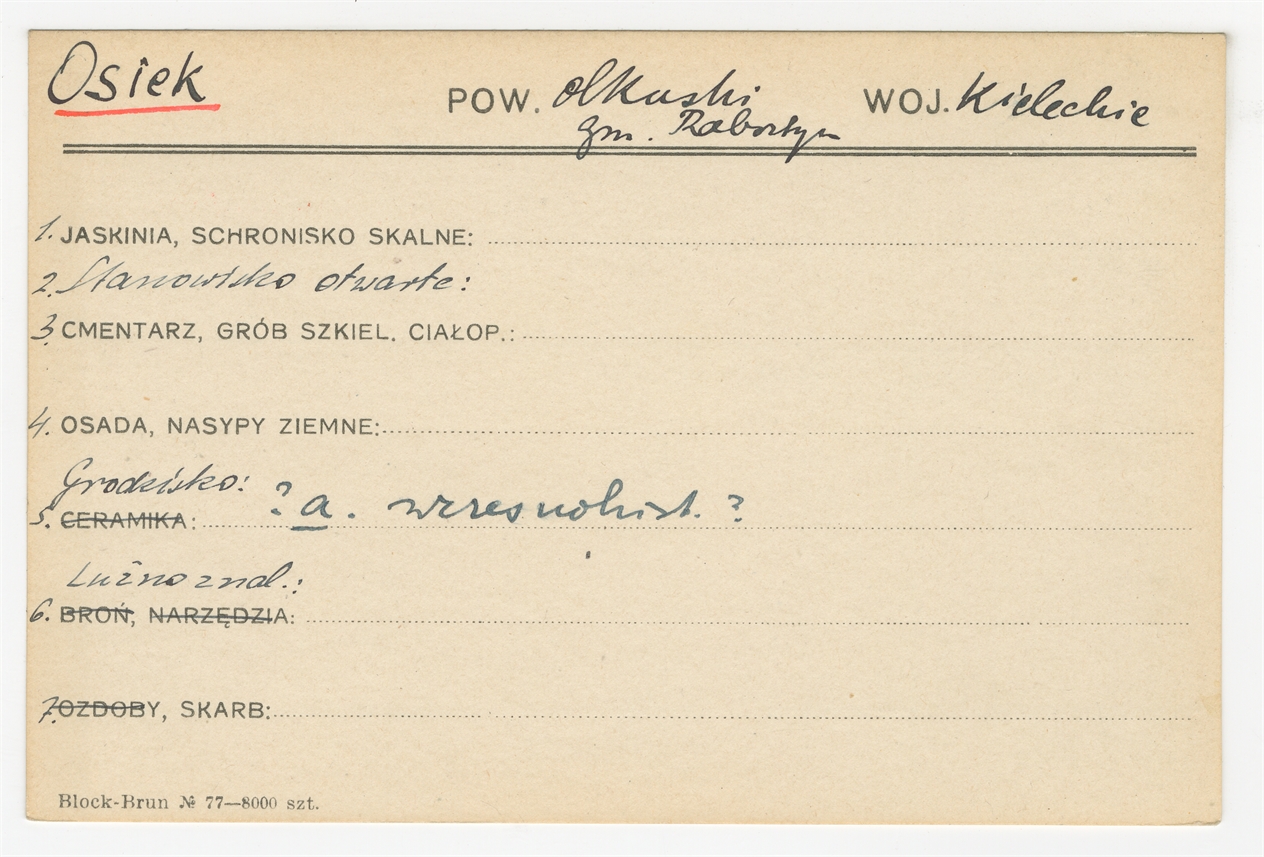 Osiek
POW. olkuski WOJ. Kieleckie
gm. Rabsztyn
1. JASKINIA, SCHRONISKO SKALNE:
2. Stanowisko otwarte:
3. CMENTARZ, GRÓB SZKIEL. CIAŁOP.:
4. OSADA, NASYPY ZIEMNE:
Grodzisko: ? a. wczesnohist. ?
5. CERAMIKA:
Luźno znal.:
6. BROŃ, NARZĘDZIA:
7. OZDOBY, SKARB:
Block-Brun № 77—8000 szt.